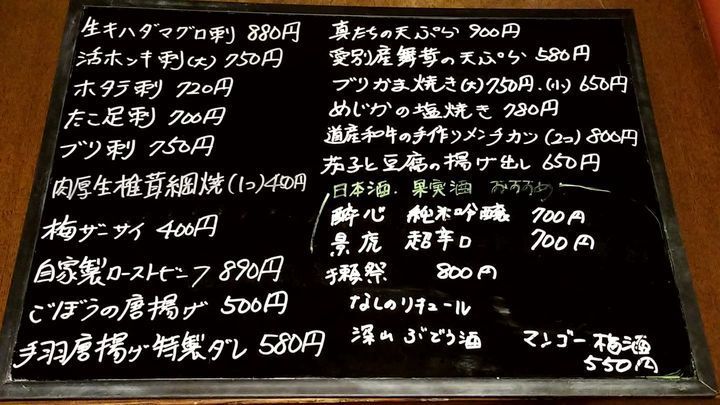 生キハダマグロ刺 880円
活ホッキ刺(大) 750円
ホタテ刺 720円
たこ足刺 700円
ブリ刺 750円
肉厚生椎茸網焼(1コ)450円
梅ザーサイ 400円
自家製ローストビーフ 890円
ごぼうの唐揚げ 500円
手羽唐揚げ特製ダレ 580円
真たちの天ぷら 900円
愛別産舞茸の天ぷら 580円
ブリかま焼き(大)750円.(小)650円
めじかの塩焼き 780円
道産和牛の手作りメンチカツ(2コ)800円
茄子と豆腐の揚げ出し 650円
日本酒.果実酒 おすすめ
酔心 純米吟醸 700円
景虎 超辛口 700円
獺祭 800円
なしのリキュール
深山ぶどう酒 マンゴー梅酒
550円